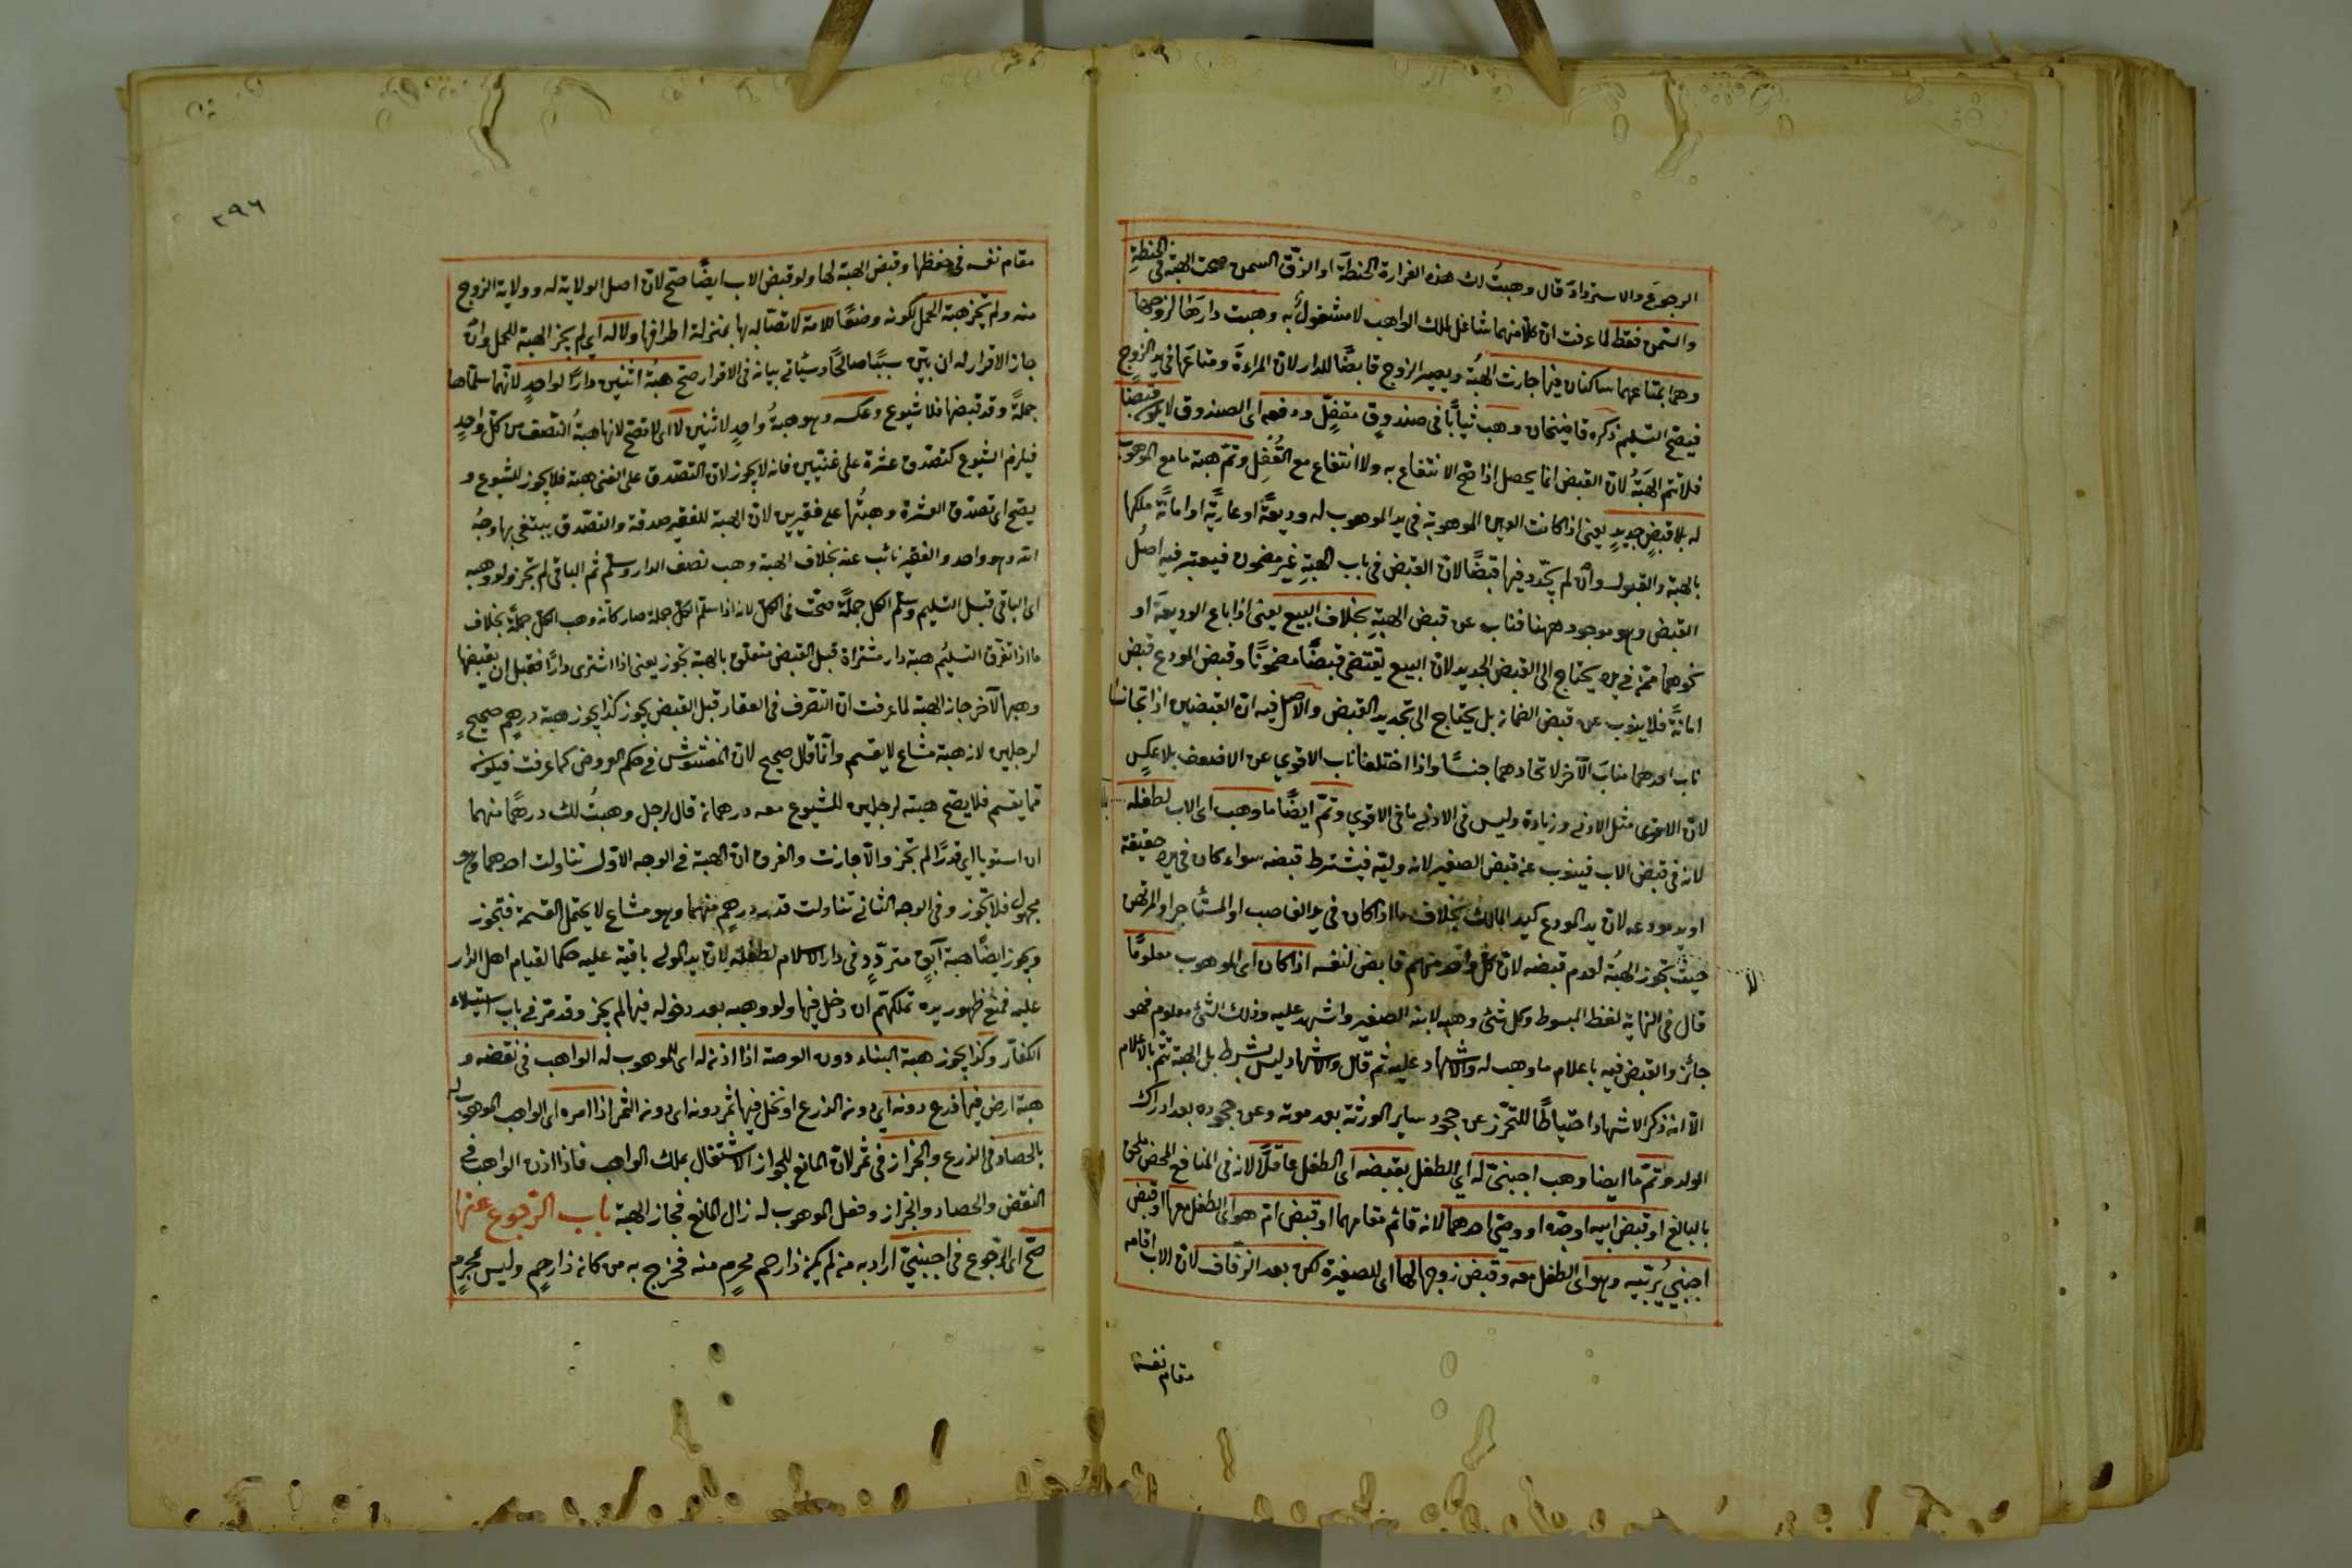 الرجوع والاسترداد قال وهبتُ لك هذه الغرارة الحنطة او الزقّ السمن صحت الهبة فى الحنطةِ
والسمن فقط لما عرفت ان كلا منهما شاغل لملك الواهب لا مشغولٌ به وهبت دارها لزوجها
وهما بمتاعهما ساكنان فيها جازت الهبةُ ويصير الزوج قابضًا للدار لان المراءةَ ومتاعها فى يد الزوج
فيصح التسليم ذكره قاضيخان وهب ثيابًا فى صندوقٍ مقفلٍ ودفعه اى الصندوق لا يكون قبضًا
فلا تتم الهبةُ لان القبض انما يحصل اذا صح الانتفاع به ولا انتفاع مع القُفلِ وتمّ هبة ما مع الموهوب
له بلا قبضٍ جديدٍ يعنى اذا كانت العين الموهوبة فى يد الموهوب له وديعةً او عاريةً او امانةً ملكها
بالهبة والقبول وان لم يجدد فيها قبضًا لان القبض فى باب الهبةِ غير مضمون فيعتبر فيه اصلُ
القبض وهو موجود ههنا فناب عن قبض الهبةِ بخلاف البيع يعنى اذا باع الوديعةَ او
نحوهما ممن فى يده يحتاج الى القبض الجديد لان البيع يقتضى قبضًا مضمونًا وقبض المودع قبض
امانةٍ فلا ينوب عن قبض الضمان بل يحتاج الى تجديد القبض والاصل فيه ان القبضين اذا تجانسا
ناب احدهما مناب الآخر لاتحادهما جنسًا واذا اختلفا ناب الاقوى عن الاضعف بلا عكسٍ
لان الاقوى مثل الادنى وزيادة وليس فى الادنى ما فى الاقوى وتمّ ايضًا ما وهب اى الاب لطفله
لانه فى قبض الاب فينوب عن قبض الصغير لانه وليّه فيشترط قبضه سواء كان فى يده حقيقة
او يد مودعه لان يد المودع كيد المالك بخلاف ما اذا كان فى يد الغاصب او المستأجر او المرتهن
حيث لا تجوز الهبةُ لعدم قبضه لان كل واحد منهم قابض لنفسه اذا كان اى الموهوب معلومًا
قال فى النهاية لفظ المبسوط وكل شئ وهبه لابنه الصغير واشهد عليه وذلك الشئ معلوم فهو
جائز والقبض فيه باعلام ما وهب له والاشهاد عليه ثم قال والاشهاد ليس بشرط بل الهبة تتم بالاعلام
الا انه ذكر الاشهاد احتياطًا للتحرّز عن جحود سائر الورثة بعد موته وعن جحوده بعد ادراك
الولد وتمّ ما ايضا وهب اجنبىّ له اى الطفل بقبضه اى الطفل عاقلًا لانه فى المنافع المحض ملحق
بالبالغ او قبض ابيه او جدّه او وصىّ احدهما لانه قائم مقامهما او قبض ام هو اى الطفل معها او قبض
اجنبيٍّ يُربّيه وهو اى الطفل معه وقبض زوجها لها اى للصغيرة لكن بعد الزفاف لان الاب اقامه
مقام نفسه
٢٩٦
مقام نفسه فى حفظها وقبض الهبة لها ولو قبض الاب ايضًا صح لان اصل الولاية له وولاية الزوج
منه ولم تجز هبة الحمل لكونه وصفًا للامة لاتصاله بها بمنزلة اطرافها ولا له اى لم يجز الهبة للحمل وان
جاز الاقرار له ان بيّن سببًا صالحًا وسيأتى بيانه فى الاقرار صح هبةُ اثنين دارًا لواحدٍ لانهما سلماها
جملةً وقد قبضها فلا شيوع وعكسه وهو هبةُ واحدٍ لاثنين لا اى لا تصح لانها هبةُ النصف من كل واحدٍ
فيلزم الشيوع كتصدق عشرة على غنيين فانه لا يجوز لان التصدق على الغنى هبة فلا يجوز للشيوع و
يصح اى تصدق العشرة وهبتُها على فقيرين لان الهبة للفقير صدقة والتصدق يبتغى بها وجهُ
الله وهو واحد والفقير نائب عنه بخلاف الهبة وهب نصف الدار وسلم ثم الباقى لم تجز ولو وهبه
اى الباقى قبل التسليم وسلم الكل جملةً صحت فى الكل لانه اذا سلم الكل جملة صار كانه وهب الكل جملةً بخلاف
ما اذا تفرق التسليم هبة دار مشتراة قبل القبض متعلق بالهبة تجوز يعنى اذا اشترى دارًا فقبل ان يقبضها
وهبها لآخر جاز الهبة لما عرفت ان التصرف فى العقار قبل القبض يجوز كذا يجوز هبة درهمٍ صحيحٍ
لرجلين لانه هبة مشاع لا يقسم وانما قال صحيح لان المغشوش فى حكم العروض كما عرفت فيكون
مما يقسم فلا يصح هبته لرجلين للشيوع معه درهمان قال لرجل وهبتُ لك درهمًا منهما
ان استويا اى قدرًا لم تجز والّا جازت والفرق ان الهبة فى الوجه الاول تناولت احدهما وهو
مجهول فلا تجوز وفى الوجه الثانى تناولت قدر درهمٍ منهما وهو مشاع لا يحتمل القسمة فتجوز
ويجوز ايضًا هبة آبقٍ متردّدٍ فى دار الاسلام لطفله لان يد المولى باقية عليه حكما لقيام اهل الدار
عليه فمنع ظهور يده تملكهم ان دخل فيها ولو وهبه بعد دخوله فيها لم يجز وقد مرّ فى باب استيلاء
الكفار وكذا يجوز هبة البناء دون العرصة اذا اذن له اى للموهوب له الواهب فى نقضه و
هبة ارض فيها زرع دونه اى دون الزرع او نخل فيها ثمر دونه اى دون الثمر اذا امره اى الواهب الموهوب له
بالحصاد فى الزرع والجزاز فى ثمر لان المانع للجواز الاشتغال بملك الواهب فاذا اذن الواهب فى
النقض والحصاد والجزاز وفعل الموهوب له زال المانع فجاز الهبة باب الرجوع عنها
صح اى الرجوع فى اجنبيٍّ اراد به من لم يكن ذا رحم محرمٍ منه فخرج به من كان ذا رحمٍ وليس بمحرمٍ